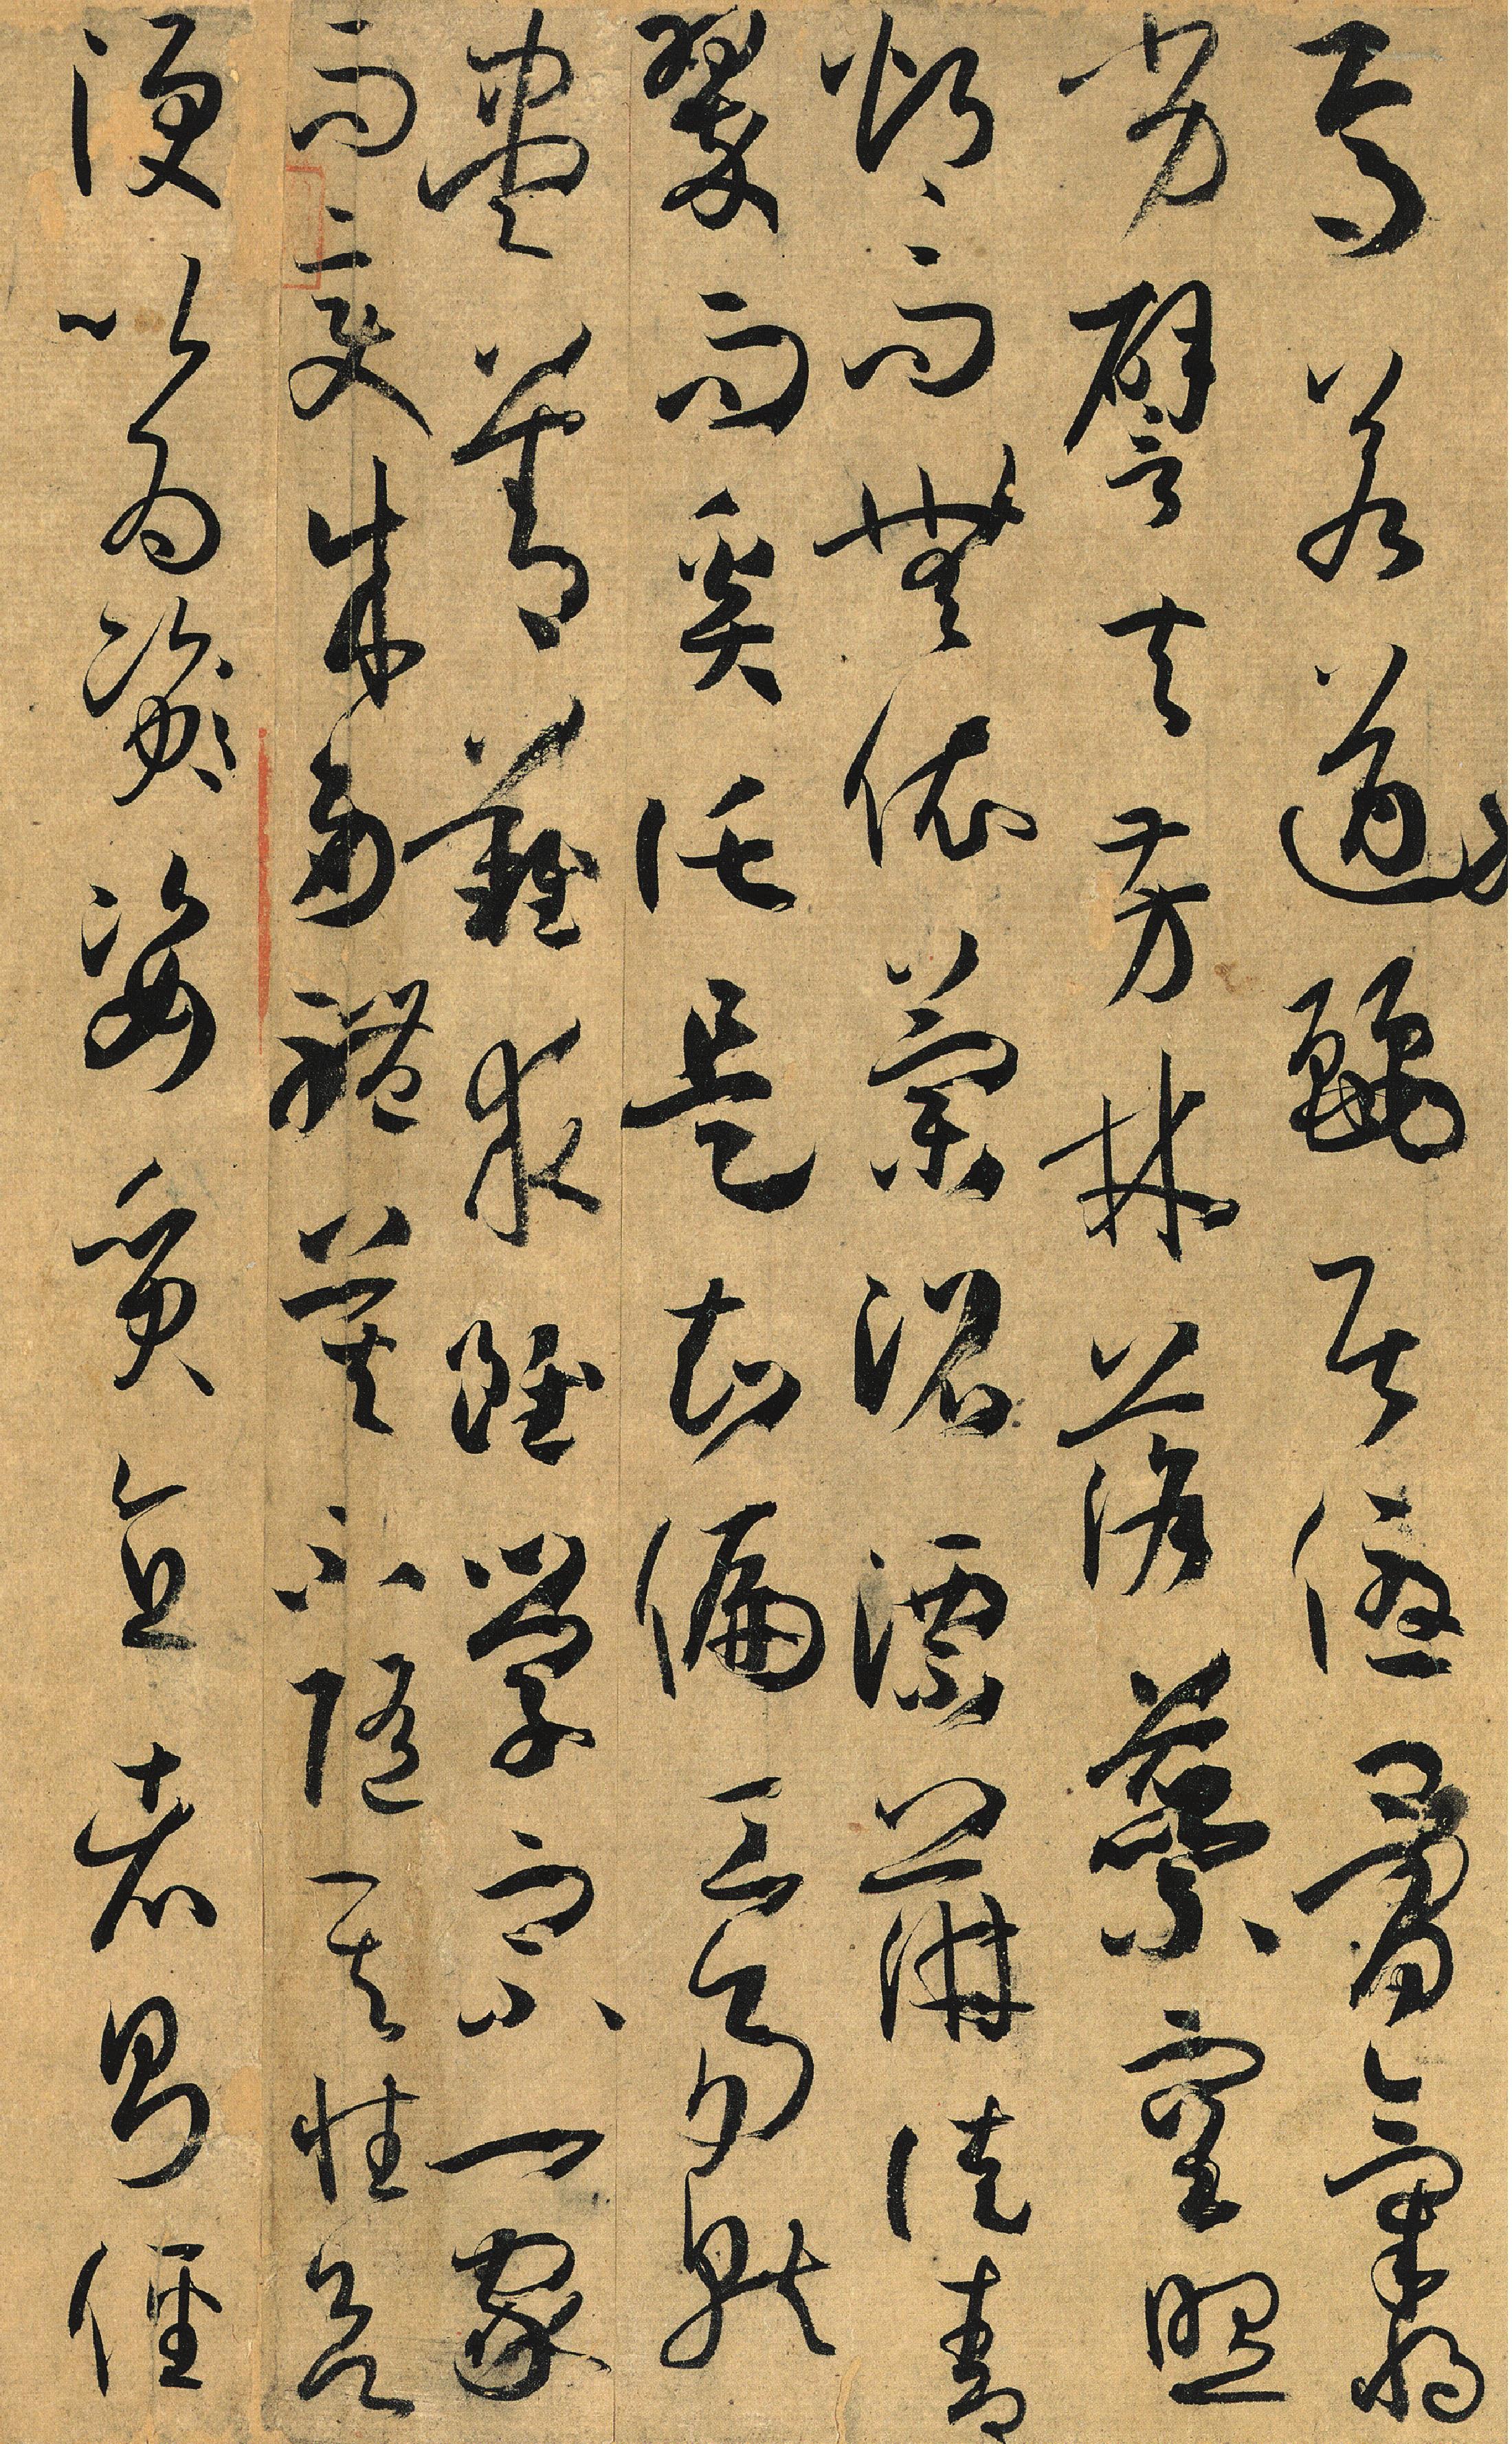 焉若遒麗居優骨氣將
劣譬夫芳林落蘂空照
灼而無依蘭沼漂蓱徒青
翠而奚託是知偏工易就
盡善難求雖學宗一家
而變成多體莫不隨其性欲
便以為資姿質直者則俓